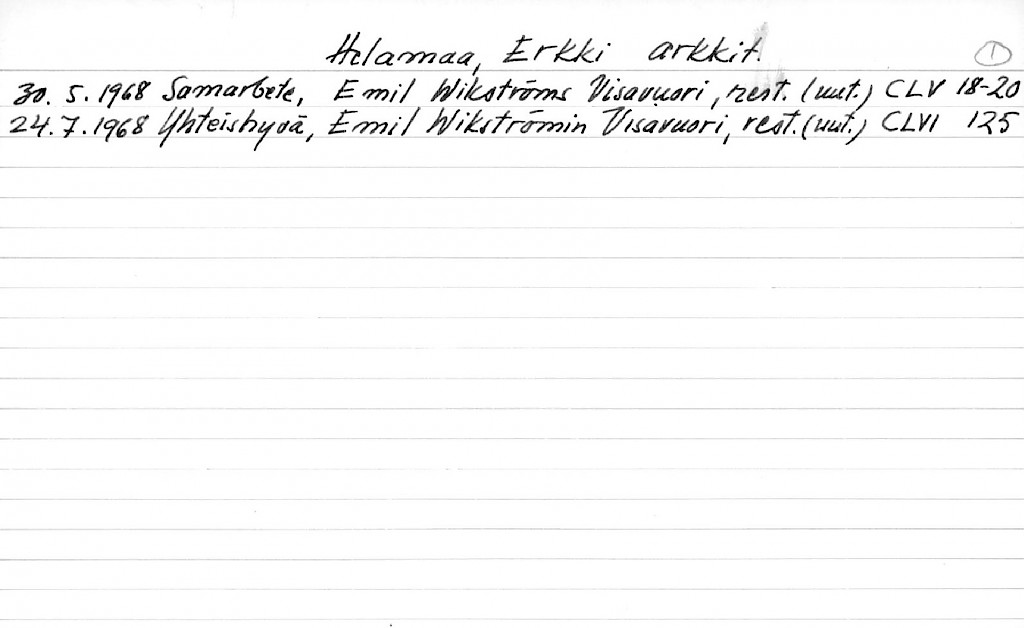 Helamaa, Erkki arkkit. 1
30. 5. 1968 Samarbete, Emil Wikströms Visavuori, rest. (uut.) CLV 18-20
24. 7. 1968 Yhteishyvä, Emil Wikströmin Visavuori, rest. (uut.) CLVI 125